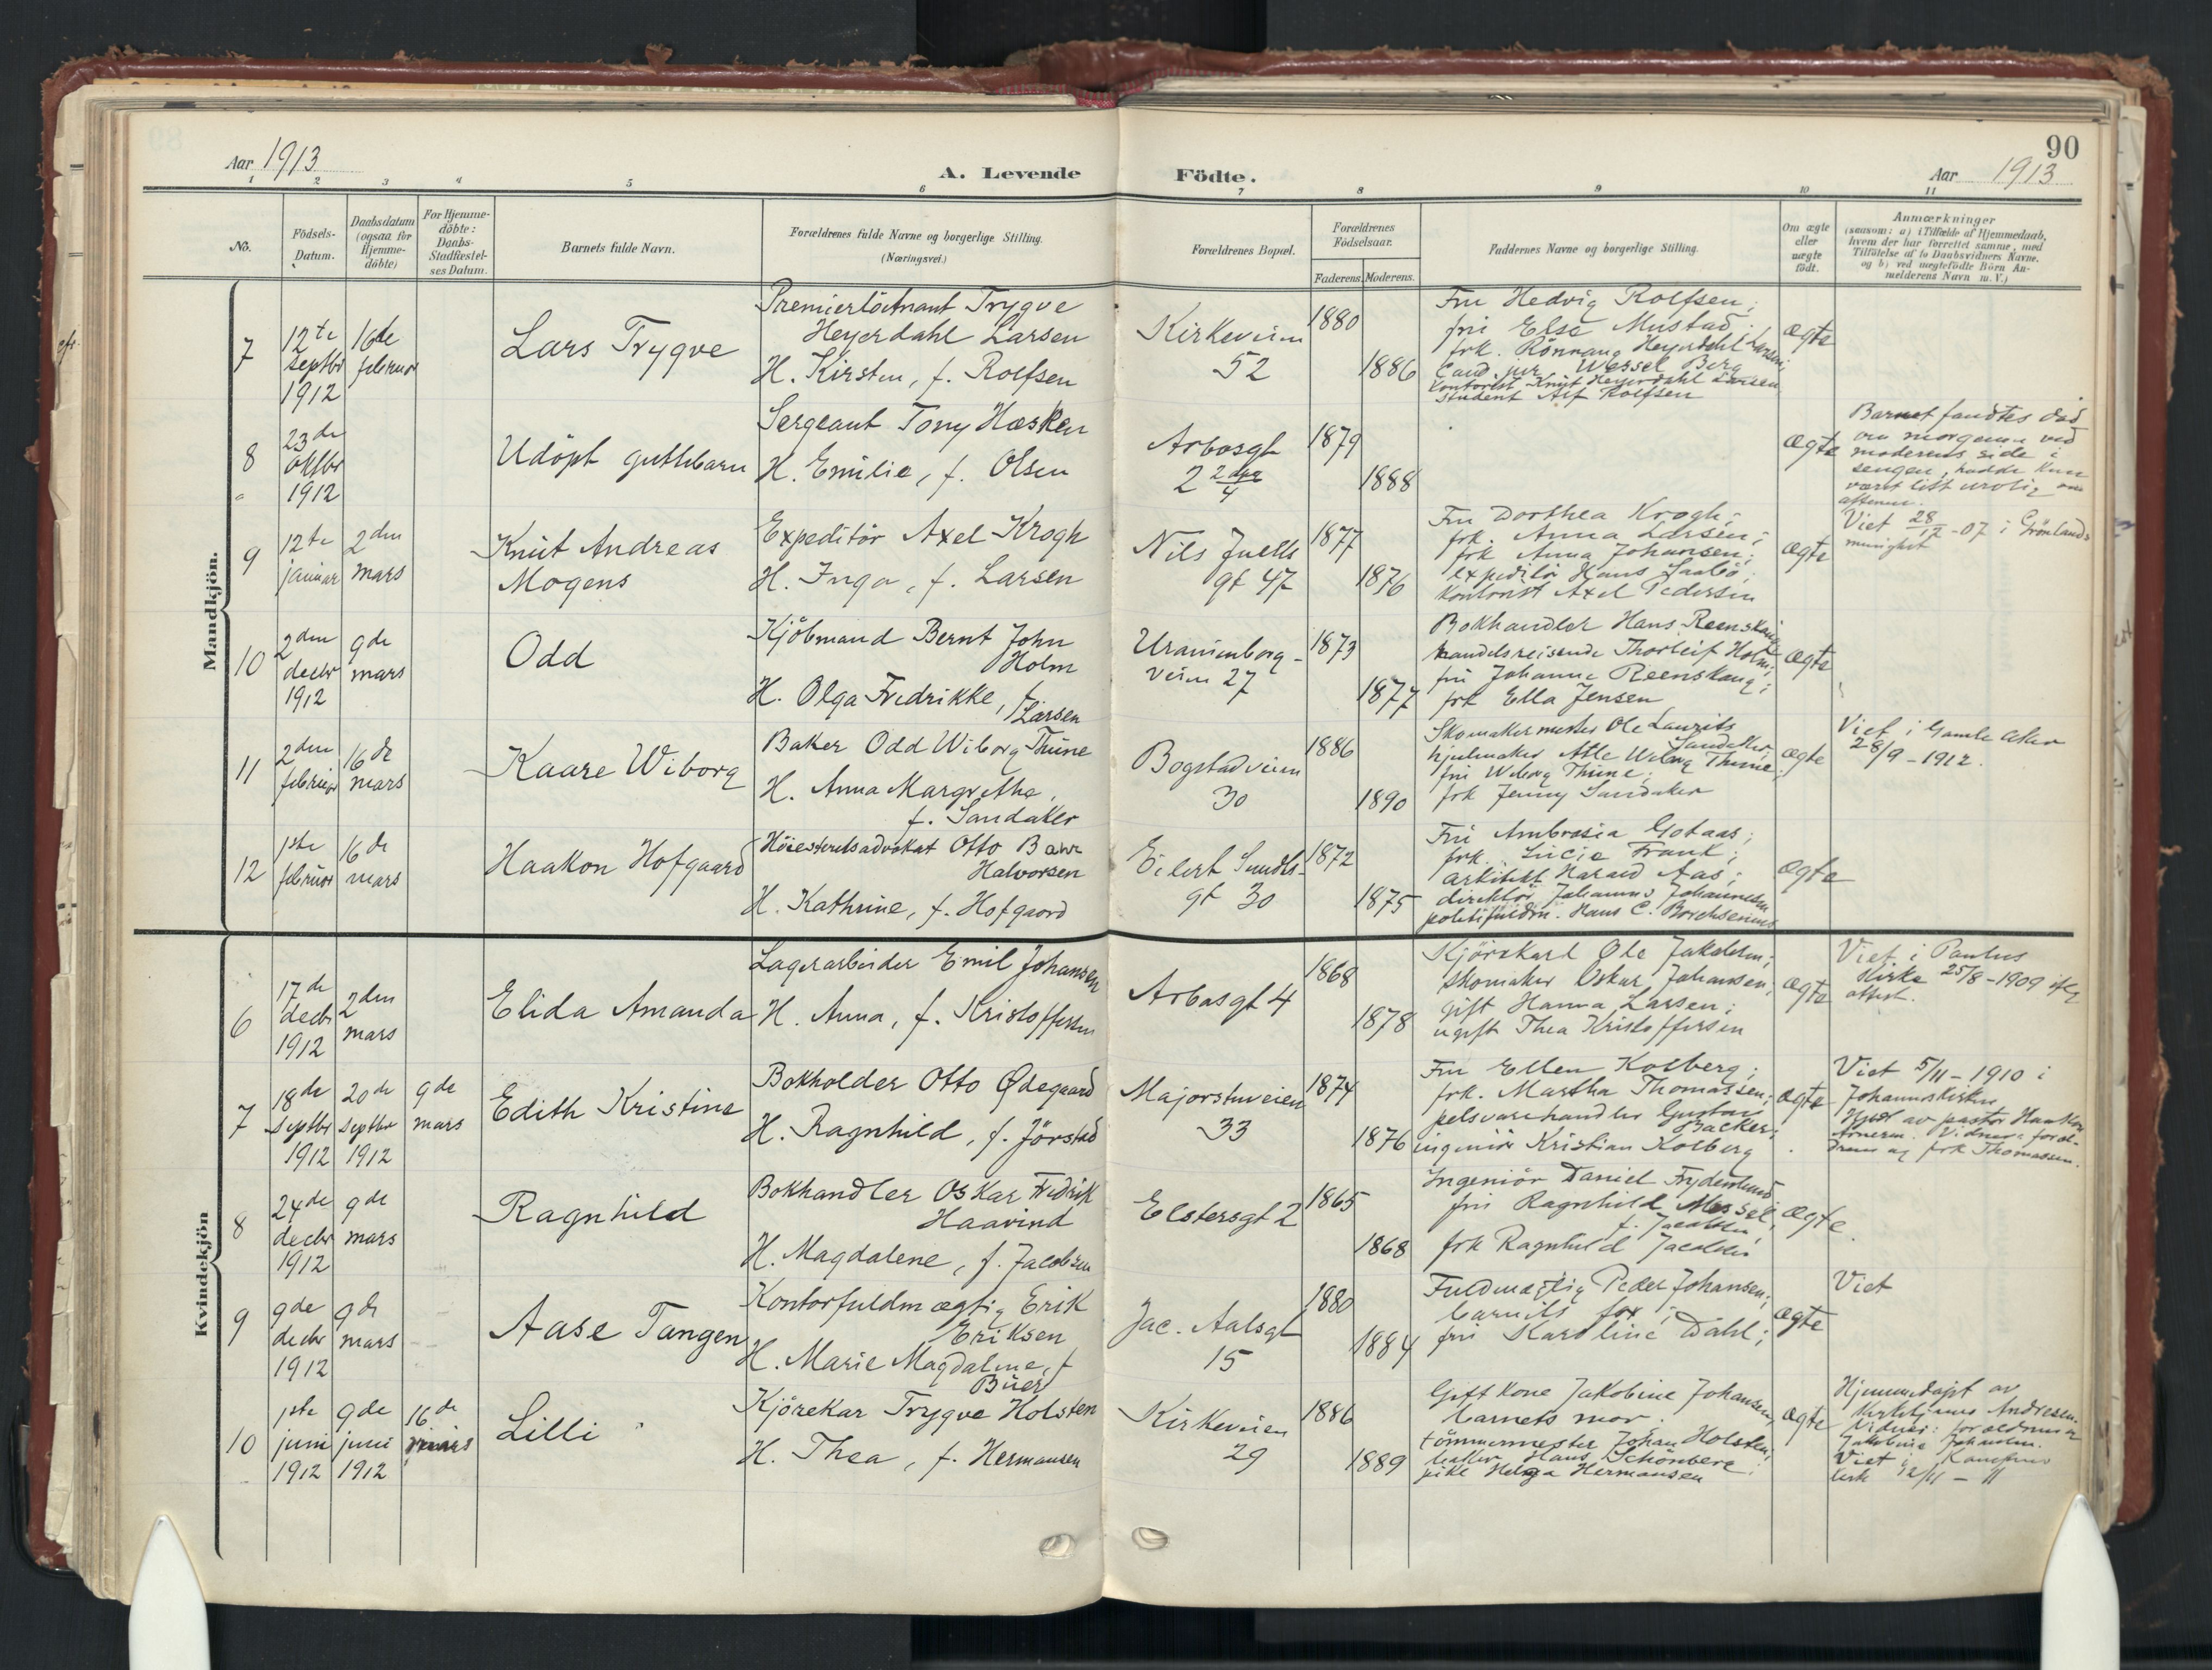 90
Aar 1913
A. Levende
Födte.
Aar 1913
1 2 3 4 5 6 7 8 9 10 11
No.
Födsels-
Datum.
Daabsdatum
(ogsaa for
Hjemme-
döbte)
For Hjemme-
döbte:
Daabs-
Stadfæstel-
ses Datum.
Barnets fulde Navn.
Forældrenes fulde Navne og borgerlige Stilling.
(Næringsvei.)
Forældrenes Bopæl.
Forældrenes
Födselsaar.
Faderens. Moderens.
Faddernes Navne og borgerlige Stilling.
Om ægte
eller
uægte
födt.
Anmærkninger
(saasom: a) i Tilfælde af Hjemmedaab,
hvem der har forrettet samme, med
Tilføielse af to Daabsvidners Navne.
og b) ved uægtefödte Börn An-
melderens Navn m. V.)
Mandkjön.
7
12te
septbr
1912
16de
februar
Lars Trygve
Premierlöitnant Trygve
Heyerdahl Larsen
H. Kirsten, f. Rolfsen
Kirkeveien
52
1880
1886
Fru Hedvig Rolfsen;
fru Else Mustad;
frk. Rönnaug Heyerdahl Larsen;
Cand. jur. Wessel Berg
Kontorist Knut Heyerdahl Larsen
student Alf Rolfsen
ægte
8
23de
oktbr
1912
Udöpt guttebarn
Sergeant Tony Hasken
H. Emilie, f. Olsen
Arbosgt
2 2 opg 4
1879
1888
ægte
Barnet fandtes död
om morgenen ved
moderens side i
sengen, hadde kun
været litt urolig om
aftenen.
9
12te
januar
2den
mars
Knut Andreas
Mogens
Expeditör Axel Krogh
H. Inga, f. Larsen
Nils Juels
gt 47
1877
1876
Fru Dorthea Krogh;
frk. Anna Larsen;
frk. Anna Johansen;
expeditör Hans
kontorist Axel Pedersen
ægte
Viet 28/12-07 i Grönlands
menighet
10
2den
decbr
1912
9de
mars
Odd
Kjöbmand Bernt John
Holm
H. Olga Fredrikke, f.
Larsen
Uranienborg-
veien 27
1873
1877
Bokhandler Hans Reenskaug
handelsreisende Thorleif Holm;
fru Johanne Reenskaug;
frk Ella Jensen
ægte
11
2den
februar
16de
mars
Kaare Wiborg
Baker Odd Wiborg Thune
H. Anna Margrethe,
f. Sandaker
Bogstadveien
30
1886
1890
Skomakermester Ole Lauritz
Sandaker,
hjulmaker Atle Wiborg Thune;
fru Wiborg Thune;
frk Jenny Sandaker
ægte
Viet i Gamle Aker
28/9-1912.
12
1ste
februar
16de
mars
Haakon Hofgaard
Höiesteretsadvokat Otto Bahr
Halvorsen
H. Kathrine, f. Hofgaard
Eilert Sundts-
gt 30
1872
1875
Fru Ambrosia Gotaas;
frk. Lucie Frank;
arkitekt Harald Aas;
direktör Johannes Johannesen
politifuldm. Hans C. Borchsenius
ægte
Kvindekjön
6
17de
decbr
1912
2den
mars
Elida Amanda
Lagerarbeider Emil Johansen
H. Anna, f. Kristoffersen
Arbosgt 4
1868
1878
Kjörekarl Ole Jakobsen;
skomaker Oskar Johansen;
gift Hanna Larsen;
ugift Thea Kristoffersen
ægte
Viet i Paulus
kirke 25/8-1909 iflg
attest.
7
18de
septbr
1912
20de
septbr
1912
9de
mars
Edith Kristine
Bokholder Otto Ödegaard
H. Ragnhild, f. Jörstad
Majorstuveien
33
1874
1876
Fru Ellen Kolberg;
frk. Martha Thomassen;
pelsvarehandler Gustav
Backer;
ingeniör Kristian Kolberg
ægte
Viet 5/11-1910 i
Johanneskirken
Hjdöt av pastor Haakon
Arnesen. Vidner: foræl-
drene og frk Thomassen.
8
24de
decbr
1912
9de
mars
Ragnhild
Bokhandler Oskar Fredrik
Haavind
H. Magdalene, f. Jacobsen
Elstersgt 2
1865
1868
Ingeniör Daniel Frydenlund
fru Ragnhild Messel,
f. Jacobsen,
frk Ragnhild Jacobsen
ægte
9
9de
decbr
1912
9de
mars
Aase Tangen
Kontorfuldmægtig Erik
Eriksen
H. Marie Magdalene, f
Büer
Jac. Aalsgt
15
1880
1884
Fuldmægtig Peder Johansen;
barnets far;
fru Karoline Dahl;
ægte
Viet
10
1ste
juni
1912
9de
juni
1912
16de
mars
Lilli
Kjörekar Trygve Holsten
H. Thea, f. Hermansen
Kirkeveien
29
1886
1889
Gift kone Jakobine Johansen,
barnets mor;
tömmermester Johan Holsten;
baker Hans Schönberg;
pike Helga Hermansen
ægte
Hjemmedöpt av
Andresen.
Vidner: forældrene og
Jakobine Johansen.
Viet i Kampens
kirk 12/11-11